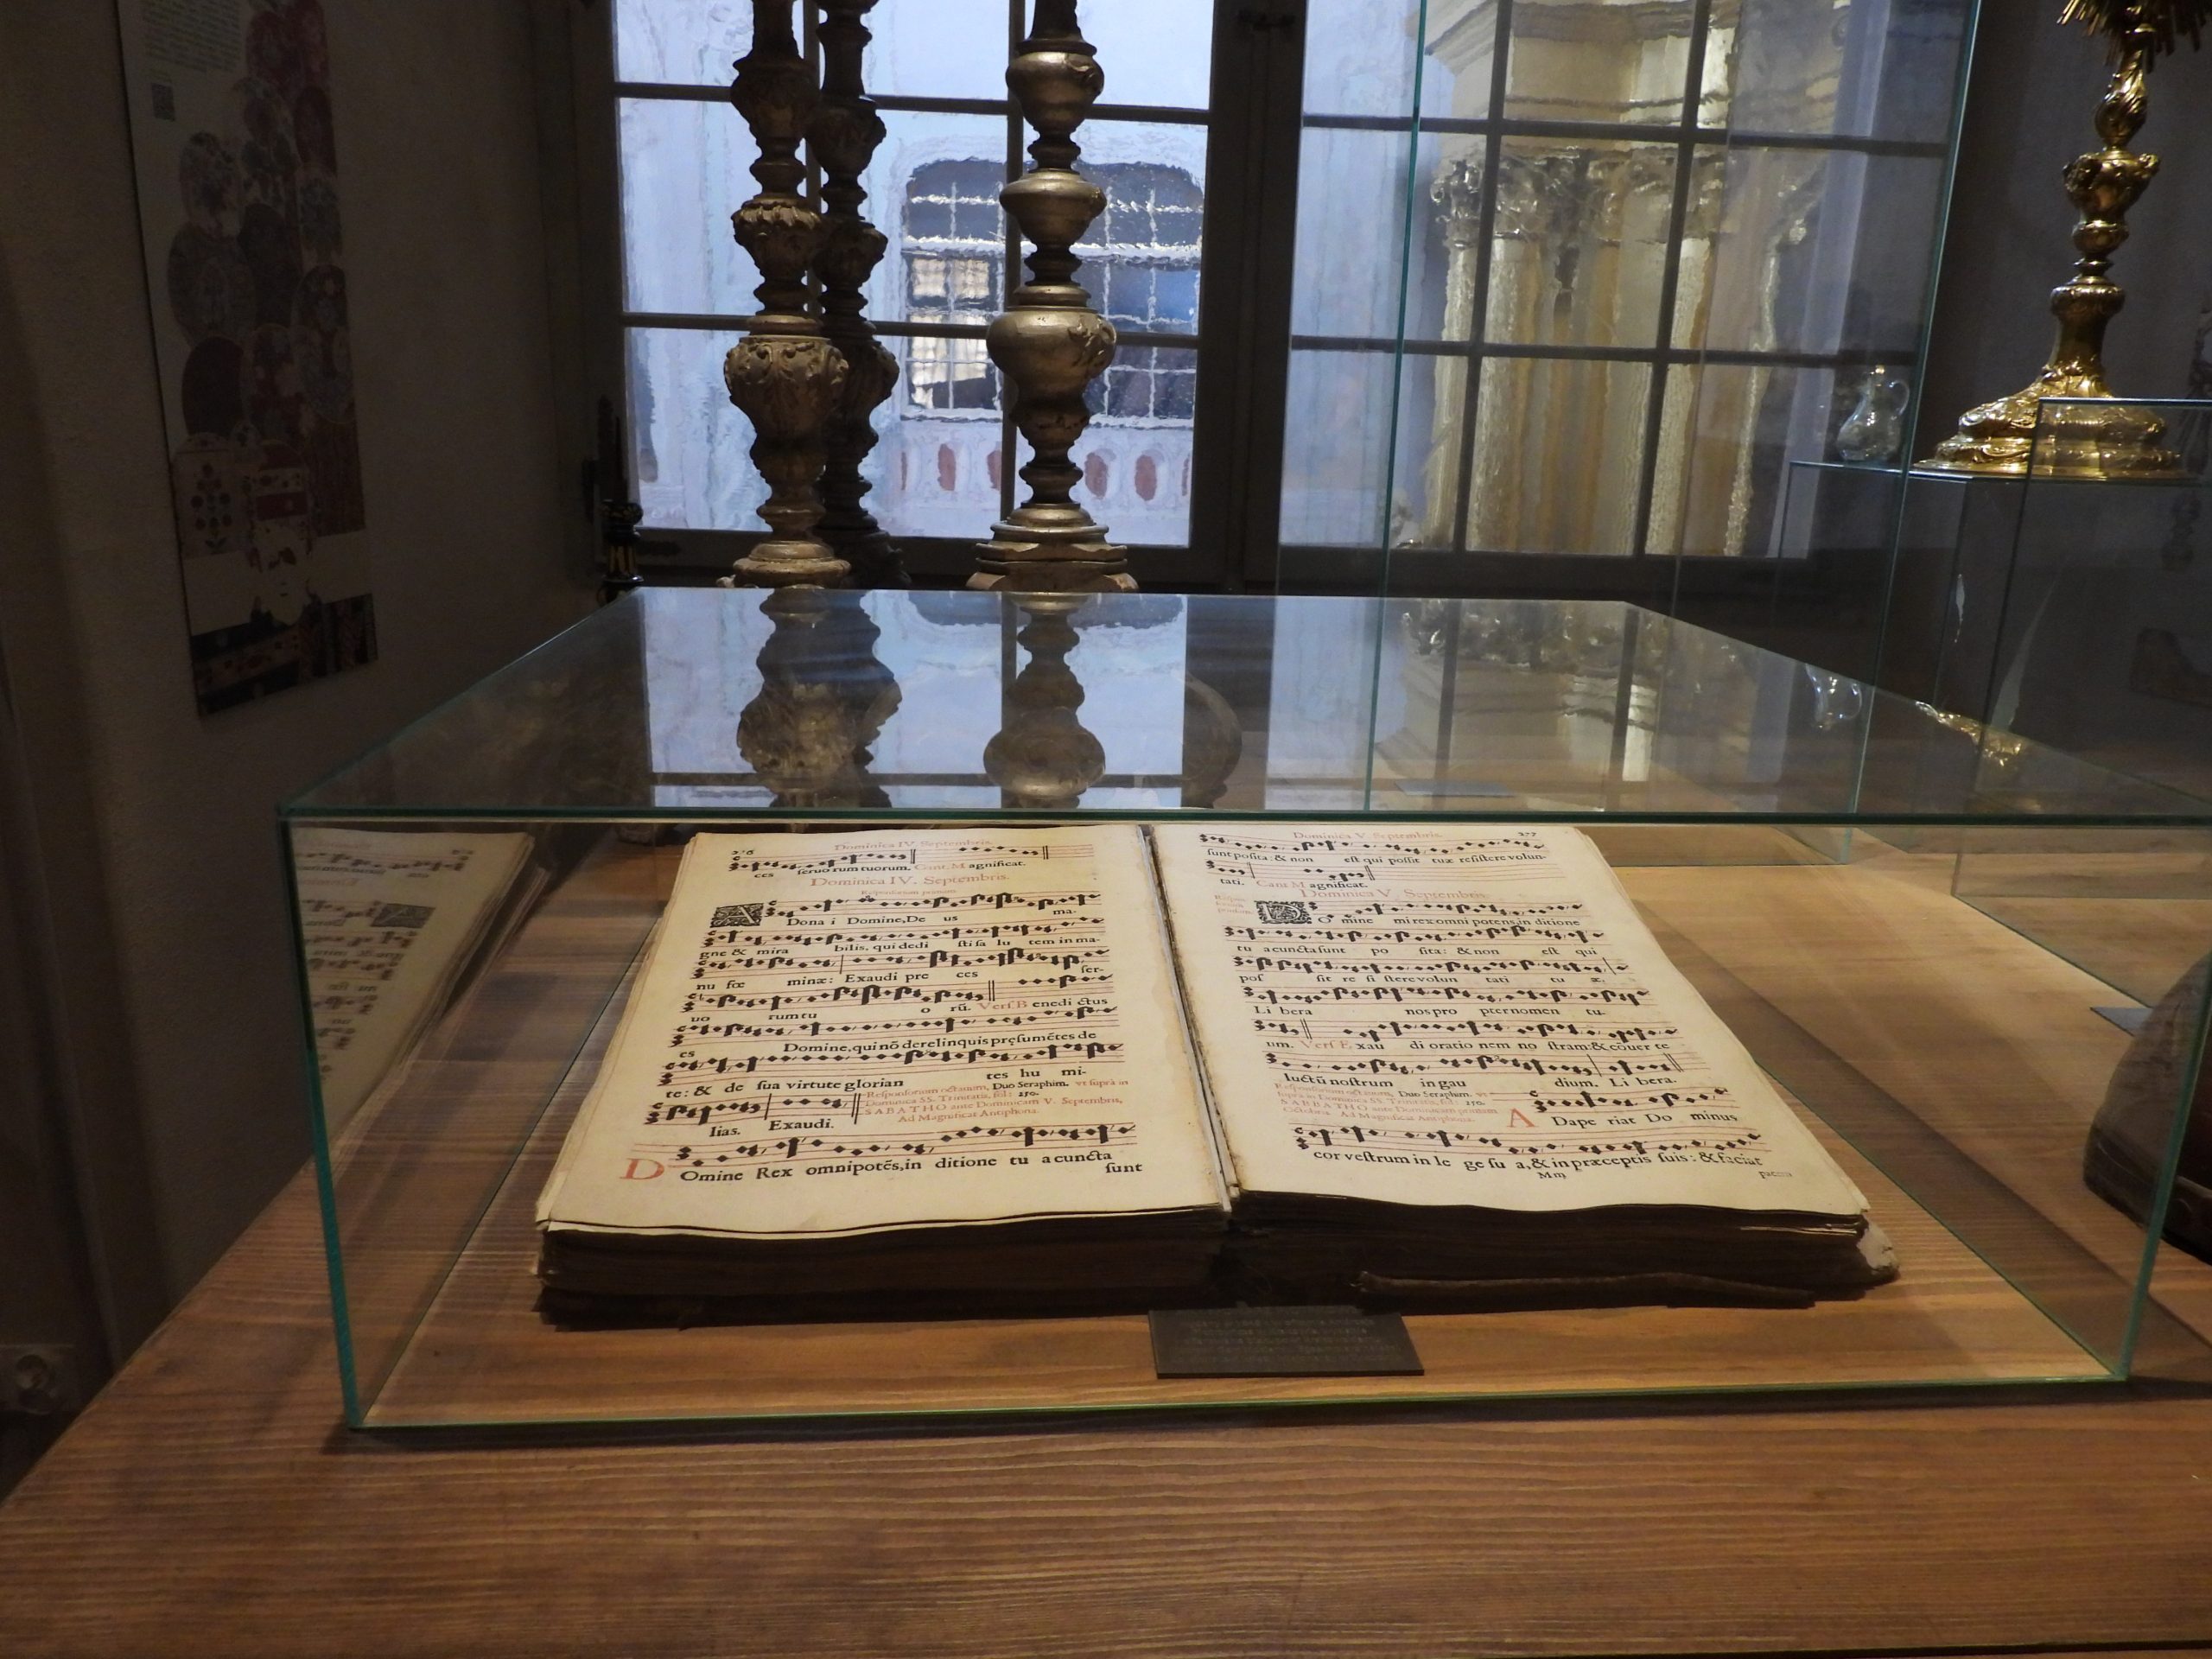 276
Dominica IV Septembris.
ces seruo rum tuorum. Cant. M agnificat.
Dominica IV. Septembris.
A Dona i Domine, De us ma-
gne & mira bilis, qui dedi sti sa lu tem in ma-
nu fœ minæ: Exaudi pre ces ser-
uo rum tu o rū. Vers. B enedi ctus
es Domine, qui nō derelinquis pręsumētes de
te: & de sua virtute glorian tes hu mi-
lias. Exaudi.
Responsorium octauum, Duo Seraphim. vt suprà in
Dominica SS. Trinitatis, fol: 250.
SABATHO ante Dominicam V. Septembris,
Ad Magnificat Antiphona.
D Omine Rex omnipotēs, in ditione tu a cuncta
sunt
Dominica V. Septembris. 277
sunt posita: & non est qui possit tuæ resistere volun-
tati. Cant. M agnificat.
Dominica V. Septembris.
D O mine mi rex omni potens, in ditione
tu a cuncta sunt po sita: & non est qui
pos sit re si stere volun tati tu æ,
Li bera nos pro pter nomen tu-
um. Vers. E xau di oratio nem no stram: & cōuer te
luctū nostrum in gau dium. Li bera.
Responsorium octauum, Duo Seraphim. vt
supra in Dominica SS. Trinitatis, fol: 250.
SABATHO ante Dominicam primam
Octobris. Ad Magnificat Antiphona.
A Dape riat Do minus
cor vestrum in le ge su a, & in præceptis suis: & faciat
Mm